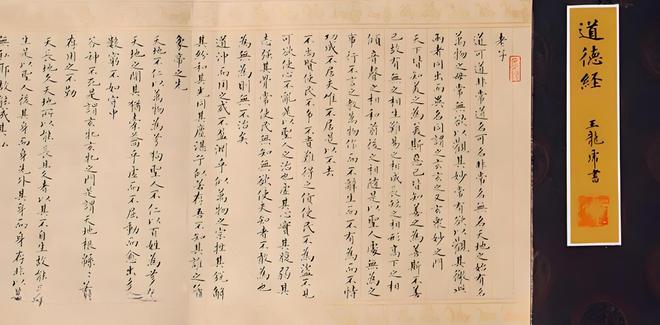 老子
道可道非常道名可名非常名無名天地之始有名
萬物之母常無欲以觀其妙常有欲以觀其徼此
兩者同出而異名同謂之玄玄之又玄衆妙之門
天下皆知美之為美斯惡已皆知善之為善斯不善
已故有無之相生難易之相成長短之相形高下之相
傾音聲之相和前後之相隨是以聖人處無為之
事行不言之教萬物作而不辭生而不有為而不恃
功成不居夫唯不居是以不去
不尚賢使民不爭不貴難得之貨使民不為盜不見
可欲使心不亂是以聖人之治也虛其心實其腹弱其
志強其骨常使民無知無欲使夫知者不敢為也
為無為則無不治矣
道沖而用之或不盈淵乎似萬物之宗挫其銳解
其紛和其光同其塵湛乎似若存吾不知其誰之
象帝之先
天地不仁以萬物為芻狗聖人不仁以百姓為芻
天地之間其猶橐籥乎虛而不屈動而愈出多
數窮不如守中
谷神不死是謂玄牝玄牝之門是謂天地根綿〻若
存用之不勤
天長地久天地所以能長且久者以其不自生故能
生是以聖人後其身而身先外其身而身存非以其
無私耶故能成其
道德経
王龍書